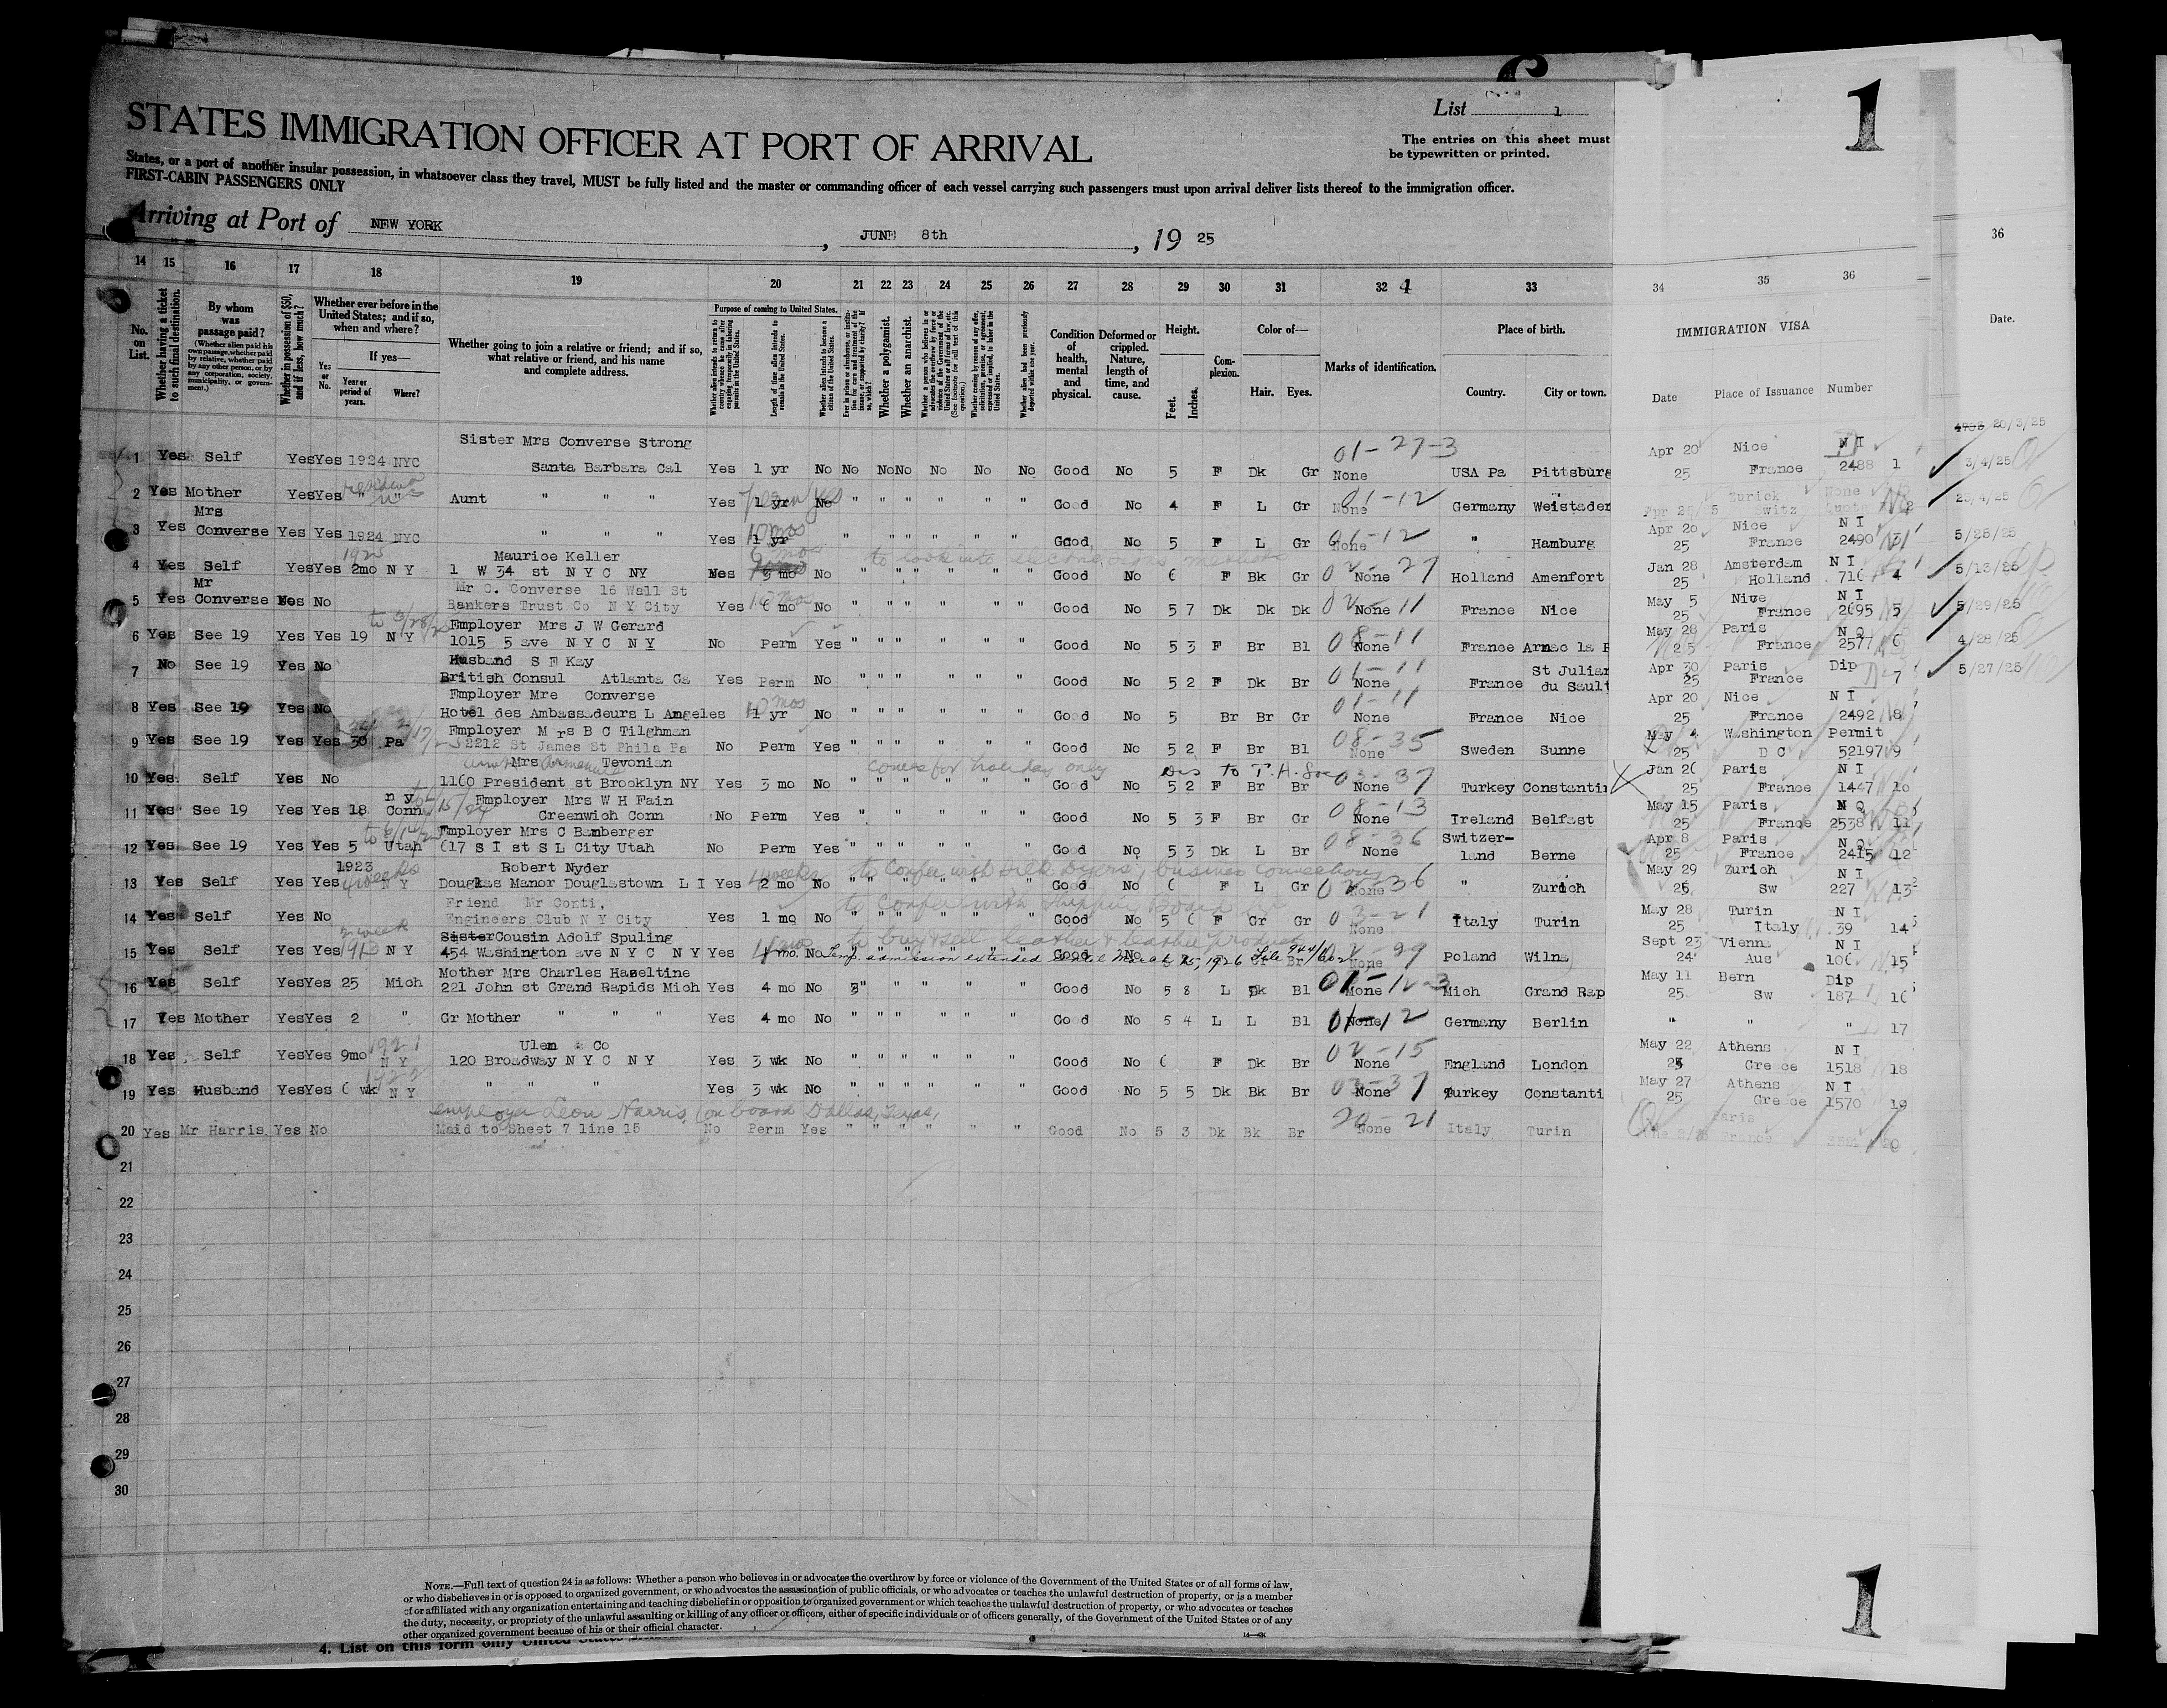 List 1
1
STATES IMMIGRATION OFFICER AT PORT OF ARRIVAL
The entries on this sheet must
be typewritten or printed.
States, or a port of another insular possession, in whatsoever class they travel, MUST be fully listed and the master or commanding officer of each vessel carrying such passengers must upon arrival deliver lists thereof to the immigration officer.
FIRST-CABIN PASSENGERS ONLY
Arriving at Port of NEW YORK, JUNE 8th, 19 25
14 15 16 17 18 19 20 21 22 23 24 25 26 27 28 29 30 31 32 33 34 35 36 36
No. on List.
Whether having a ticket to such final destination.
By whom was passage paid?
(Whether alien paid his own passage, whether paid by relative, whether paid by any other person, or by any corporation, society, municipality, or government.)
Whether in possession of $50, and if less, how much?
Whether ever before in the United States; and if so, when and where?
Yes or No.
If yes—
Year or period of years.
Where?
Whether going to join a relative or friend; and if so, what relative or friend, and his name and complete address.
Purpose of coming to United States.
Length of time alien intends to remain in the United States.
Whether alien intends to become a citizen of the United States.
Whether a polygamist.
Whether an anarchist.
Condition of health, mental and physical.
Deformed or crippled. Nature, length of time, and cause.
Height.
Feet. Inches.
Complexion.
Color of—
Hair. Eyes.
Marks of identification.
Place of birth.
Country. City or town.
IMMIGRATION VISA
Date Place of Issuance Number
Date.
Sister Mrs Converse Strong 01-27-3 Apr 20 Nice N I 20/3/25
1 Yes Self Yes Yes 1924 NYC Santa Barbara Cal Yes 1 yr No No No No No No No Good No 5 F Dk Gr None USA Pa Pittsburg 25 France 2488 1 3/4/25
2 Yes Mother Yes Yes " " Aunt " " " Yes 1 yr No " " " " " " Good No 4 F L Gr None 01-12 Germany Weistader Zurick Switz None Quota 2 23/4/25
Mrs Apr 20 Nice N I
3 Yes Converse Yes Yes 1924 NYC " " " Yes 1 yr 10 mos " " " " " " Good No 5 F L Gr None 01-12 " Hamburg 25 France 2490 3 5/25/25
1925 Maurice Keller Jan 28 Amsterdam N I
4 Yes Self Yes Yes 2mo N Y 1 W 34 st N Y C NY Yes 3 mo No " " " " " " Good No 6 F Bk Gr None 02-27 Holland Amenfort 25 Holland 716 4 5/13/25
Mr Mr C. Converse 16 Wall St May 5 Nive N I
5 Yes Converse Yes No Bankers Trust Co N Y City Yes 6 mo No " " " " " " Good No 5 7 Dk Dk Dk None 02-11 France Nice 25 France 2695 5 5/29/25
Employer Mrs J W Gerard May 28 Paris N Q
6 Yes See 19 Yes Yes 19 N Y 1015 5 ave N Y C NY No Perm Yes " " " " " " Good No 5 3 F Br Bl None 08-11 France Arnac la P 25 France 2577 6 4/28/25
Husband S F Kay Apr 30 Paris Dip
7 No See 19 Yes No British Consul Atlanta Ga Yes Perm No " " " " " " Good No 5 2 F Dk Br None 01-11 France St Julian du Sault 25 France 7 5/27/25
Employer Mre Converse Apr 20 Nice N I
8 Yes See 19 Yes No Hotel des Ambassadeurs L Angeles 1 yr 10 mos No " " " " " " Good No 5 Br Br Gr None 01-11 France Nice 25 France 2492 8
Employer M rs B C Tilghman May 4 Washington Permit
9 Yes See 19 Yes Yes 30 Pa 2212 St James St Phila Pa No Perm Yes " " " " " " Good No 5 2 F Br Bl None 08-35 Sweden Sunne 25 D C 52197 9
Mrs Tevonian comes for holiday only Jan 26 Paris N I
10 Yes Self Yes No 1160 President st Brooklyn NY Yes 3 mo No " " " " " " Good No 5 2 F Br Br None 03-37 Turkey Constantin 25 France 1447 10
n y Employer Mrs W H Fain May 15 Paris N Q
11 Yes See 19 Yes Yes 18 Conn Greenwich Conn No Perm Yes " " " " " Good No 5 3 F Br Gr None 08-13 Ireland Belfast 25 France 2538 11
Employer Mrs C Bamberger Apr 8 Paris N Q
12 Yes See 19 Yes Yes 5 Utah 617 S I st S L City Utah No Perm Yes " " " " " " Good No 5 3 Dk L Br None 08-36 Switzer-land Berne 25 France 2415 12
1923 Robert Nyder May 29 Zurich N I
13 Yes Self Yes Yes 4 weeks N Y Douglas Manor Douglastown L I Yes 2 mo No " " " " " " Good No 6 F L Gr None 02-36 " Zurich 25 Sw 227 13
Friend Mr Conti, May 28 Turin N I
14 Yes Self Yes No Engineers Club N Y City Yes 1 mo No " " " " " " Good No 5 6 F Gr Gr None 03-21 Italy Turin 25 Italy 39 14
Sister Cousin Adolf Spuling to buy & sell leather & leather products Sept 23 Vienna N I
15 Yes Self Yes Yes 1913 N Y 454 Washington ave N Y C N Y Yes mo. No Temp. admission extended until March 25, 1926 File Good No None Poland Wilna 24 Aus 106 15
Mother Mrs Charles Haseltine May 11 Bern Dip
16 Yes Self Yes Yes 25 Mich 221 John st Grand Rapids Mich Yes 4 mo No " " " " " " Good No 5 8 L Dk Bl None 01-12-3 Mich Grand Rap 25 Sw 187 16
17 Yes Mother Yes Yes 2 " Gr Mother " " " Yes 4 mo No " " " " " " Good No 5 4 L L Bl None 01-12 Germany Berlin " " " 17
1921 Ulen & Co May 22 Athens N I
18 Yes Self Yes Yes 9mo N Y 120 Broadway N Y C N Y Yes 3 wk No " " " " " " Good No 6 F Dk Br None 02-15 England London 25 Greece 1518 18
1922 May 27 Athens N I
19 Yes Husband Yes Yes 6 wk N Y " " " Yes 3 wk No " " " " " " Good No 5 5 Dk Bk Br None 03-37 Turkey Constanti 25 Greece 1570 19
employer Leon Harris, (on board Dallas, Texas, Paris
20 Yes Mr Harris Yes No Maid to Sheet 7 line 15 No Perm Yes " " " " " " Good No 5 3 Dk Bk Br None 20-21 Italy Turin France 20
21
22
23
24
25
26
27
28
29
30
NOTE.—Full text of question 24 is as follows: Whether a person who believes in or advocates the overthrow by force or violence of the Government of the United States or of all forms of law,
or who disbelieves in or is opposed to organized government, or who advocates the assassination of public officials, or who advocates or teaches the unlawful destruction of property, or is a member
of or affiliated with any organization entertaining and teaching disbelief in or opposition to organized government or which teaches the unlawful destruction of property, or who advocates or teaches
the duty, necessity, or propriety of the unlawful assaulting or killing of any officer or officers, either of specific individuals or of officers generally, of the Government of the United States or of any
other organized government because of his or their official character.
4. List on this form only United States
1